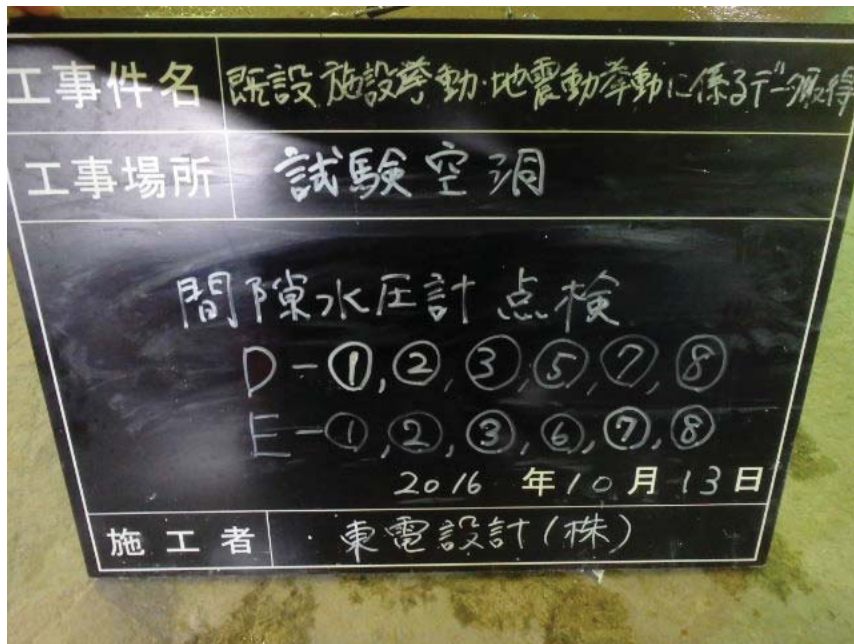 工事件名 既設施設挙動・地震動挙動に係るデータ取得
工事場所 試験空洞
間隙水圧計点検
D-①,②,③,⑤,⑦,⑧
E-①,②,③,⑥,⑦,⑧
2016年10月13日
施工者 東電設計(株)